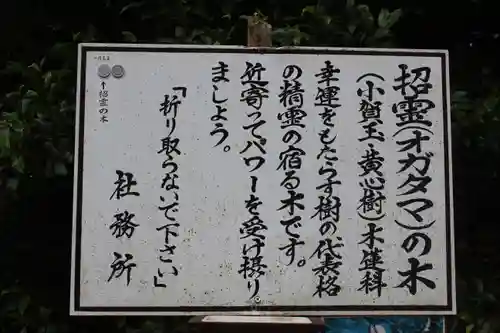 招霊(オガタマ)の木
(小賀玉・黄心樹)木蓮科
幸運をもたらす樹の代表格
の精霊の宿る木です。
近寄ってパワーを受け摂り
ましょう。
「祈り取らないで下さい」
社務所
↑招霊の木